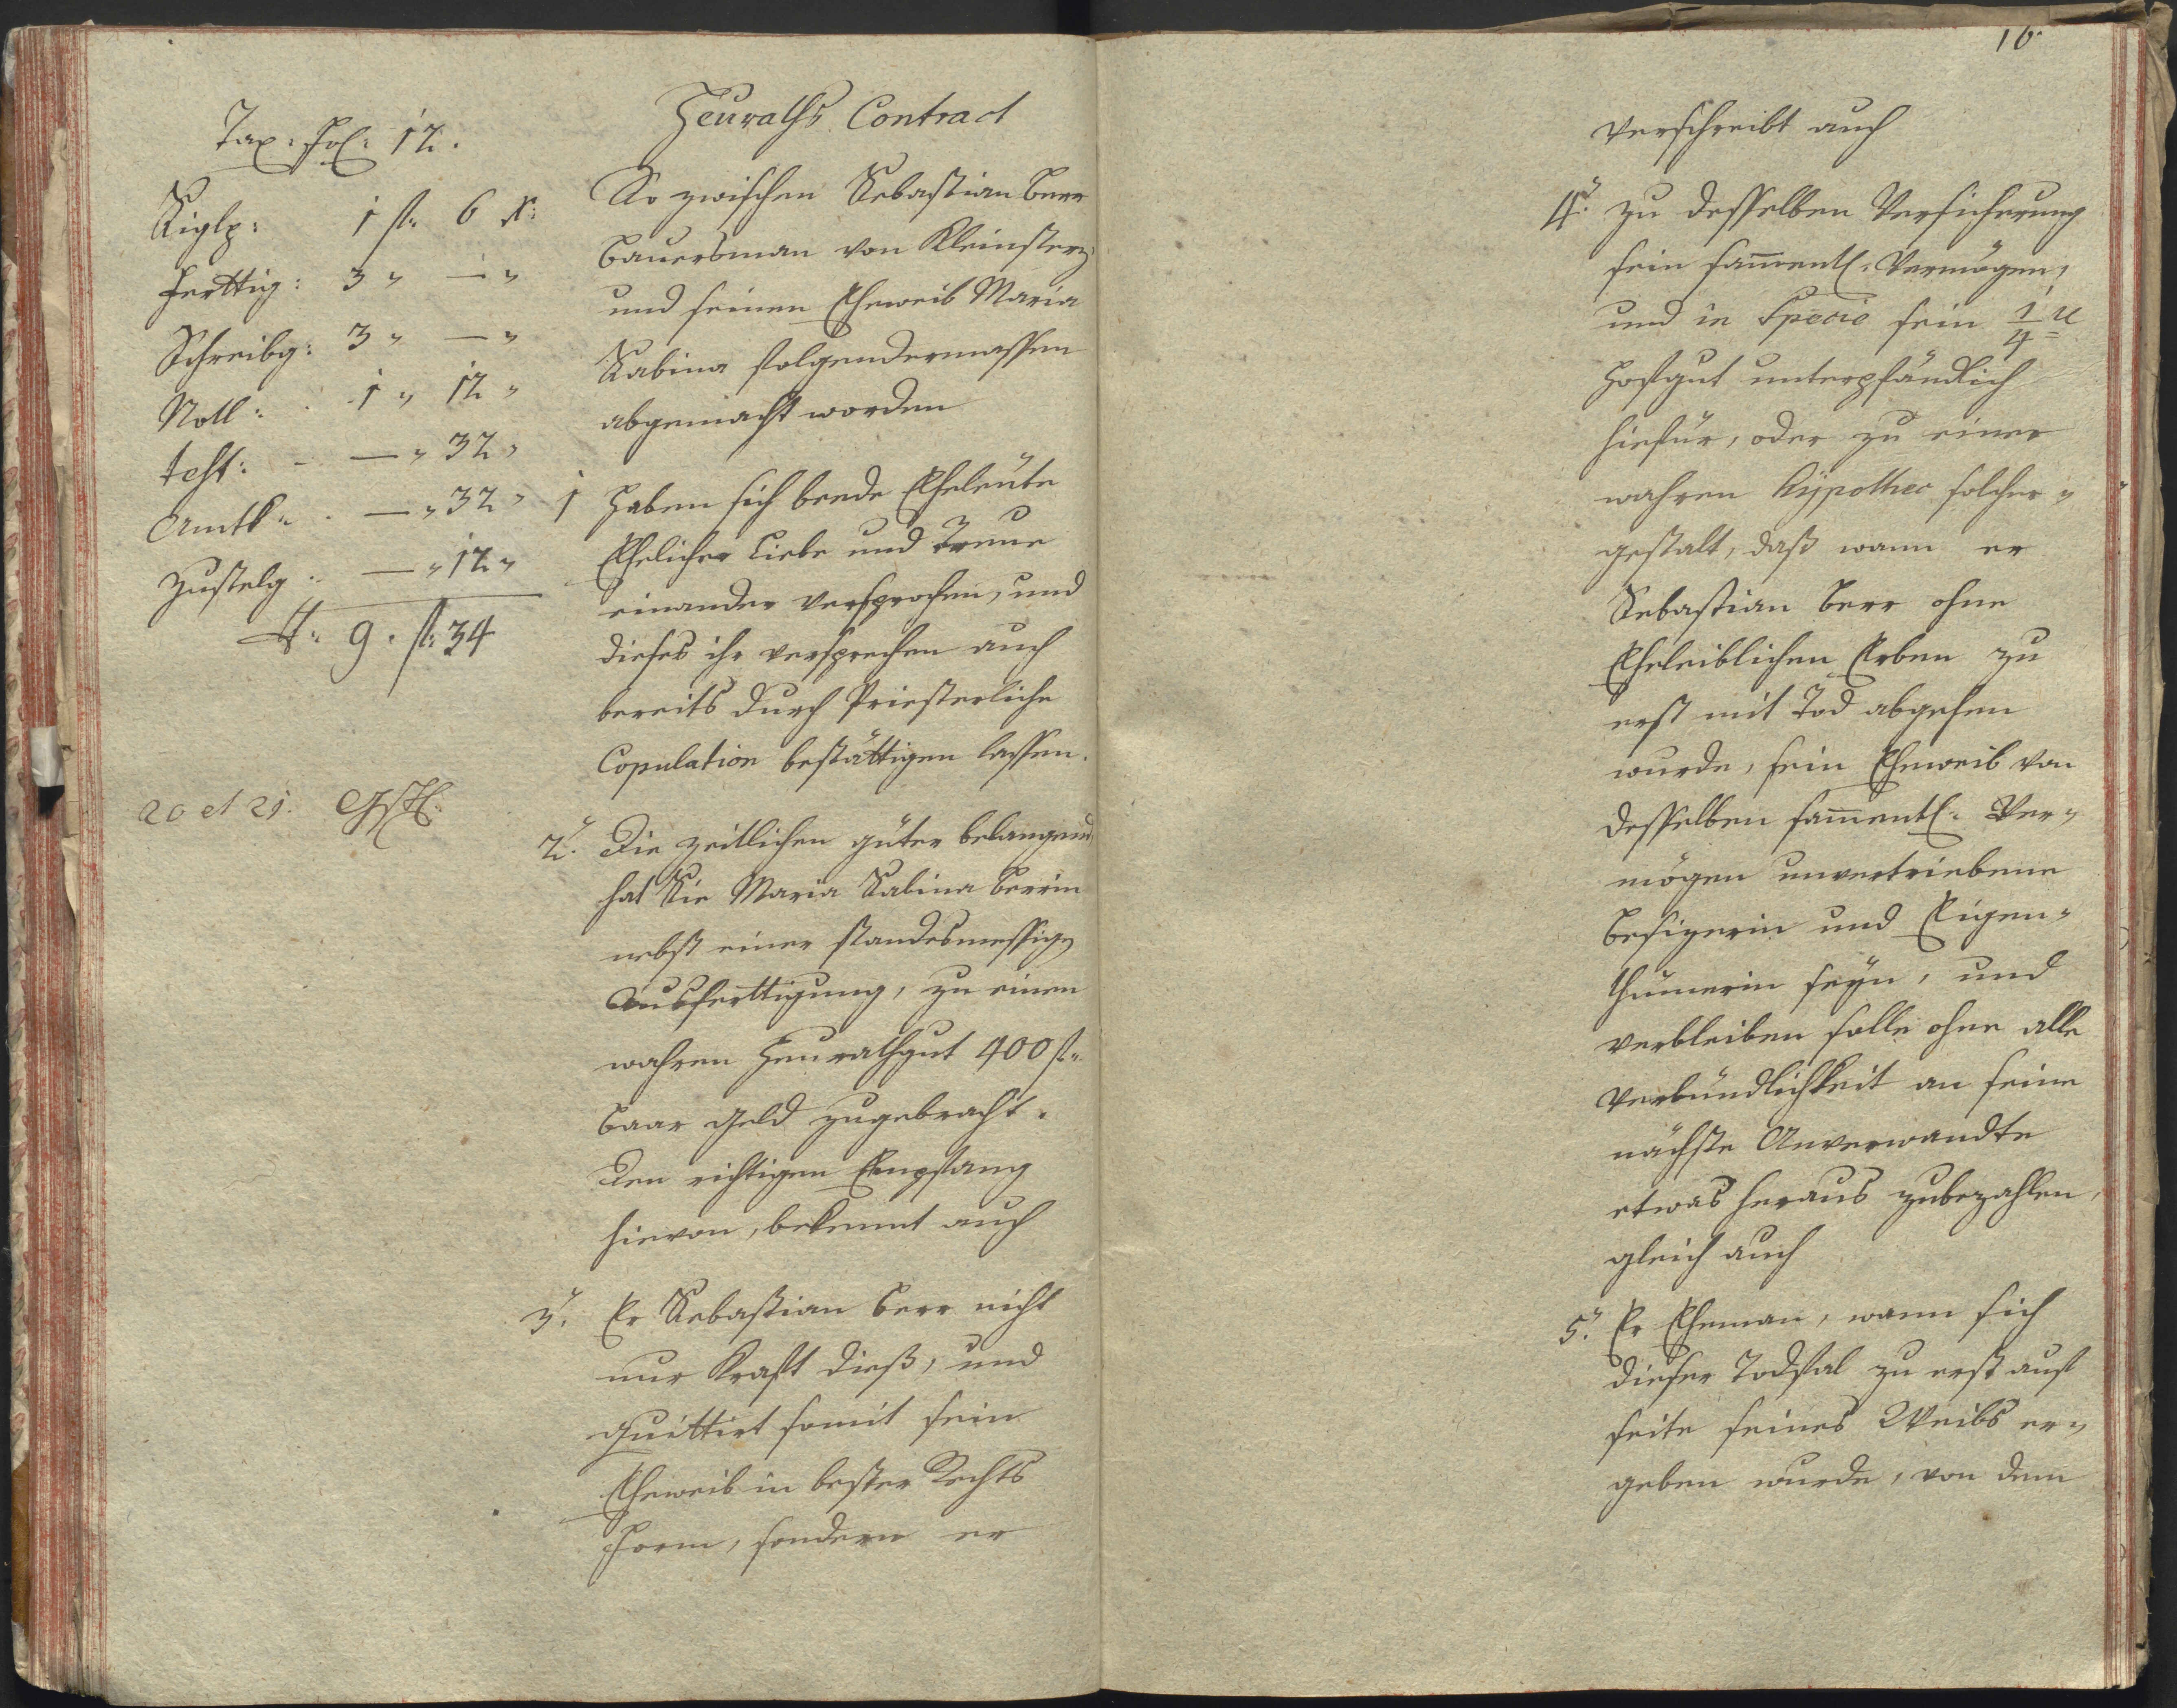 Tax: Fol: 12.
Siglg: 1 fl. 6 x:
Ferttig: 3 " — "
Schreibg: 3 " — "
Noll: 1 " 12 "
test: — " 32 "
Amtk: — " 32 "
Zustelg: — " 12 "
9. fl. 34
20 et 21.
Heuraths Contract
So zwischen Sebastian Berr
Bauersman von Kleinsterz
und seinen Eheweib Maria
Sabina folgendermassen
abgemacht worden
1 Haben sich beede Eheleüte
Ehelicher Liebe und Treue
einander versprochen, und
dieses ihr versprechen auch
bereits durch Priesterliche
Copulation bestättigen lassen.
2. Die zeitlichen güter belangend
hat Sie Maria Sabina Berrin
nebst einer standesmessig
Ausferttigung, zu einen
wahren Heurathgut 400 fl.
baar geld zugebracht.
Den richtigen Empfang
hievon, bekennt auch
3. Er Sebastian Berr nicht
nur Kraft dieß, und
quittirt somit sein
Eheweib in bester Rechts
Form, sondern er
16.
verschreibt auch
4. zu desselben Versicherung
sein sam̄entl. Vermögen,
und in Specie sein 1/4
Hofgut unterpfändlich
hiefür, oder zu einer
wahren Hÿpothec solcher=
gestalt, daß wann er
Sebastian Berr ohne
Eheleiblichen Erben zu
erst mit Tod abgehen
wurde, sein Eheweib von
desselben sam̄entl. Ver=
mögen unvertriebene
Besizerin und Eigen=
thumerin seÿn, und
verbleiben solle ohne alle
Verbündlichkeit an seine
nächste Anverwandte
etwas heraus zubezahlen,
gleich auch
5. Er Eheman, wann sich
dieser Todfal zu erst auf
seite seines Weibs er=
geben wurde, von dem